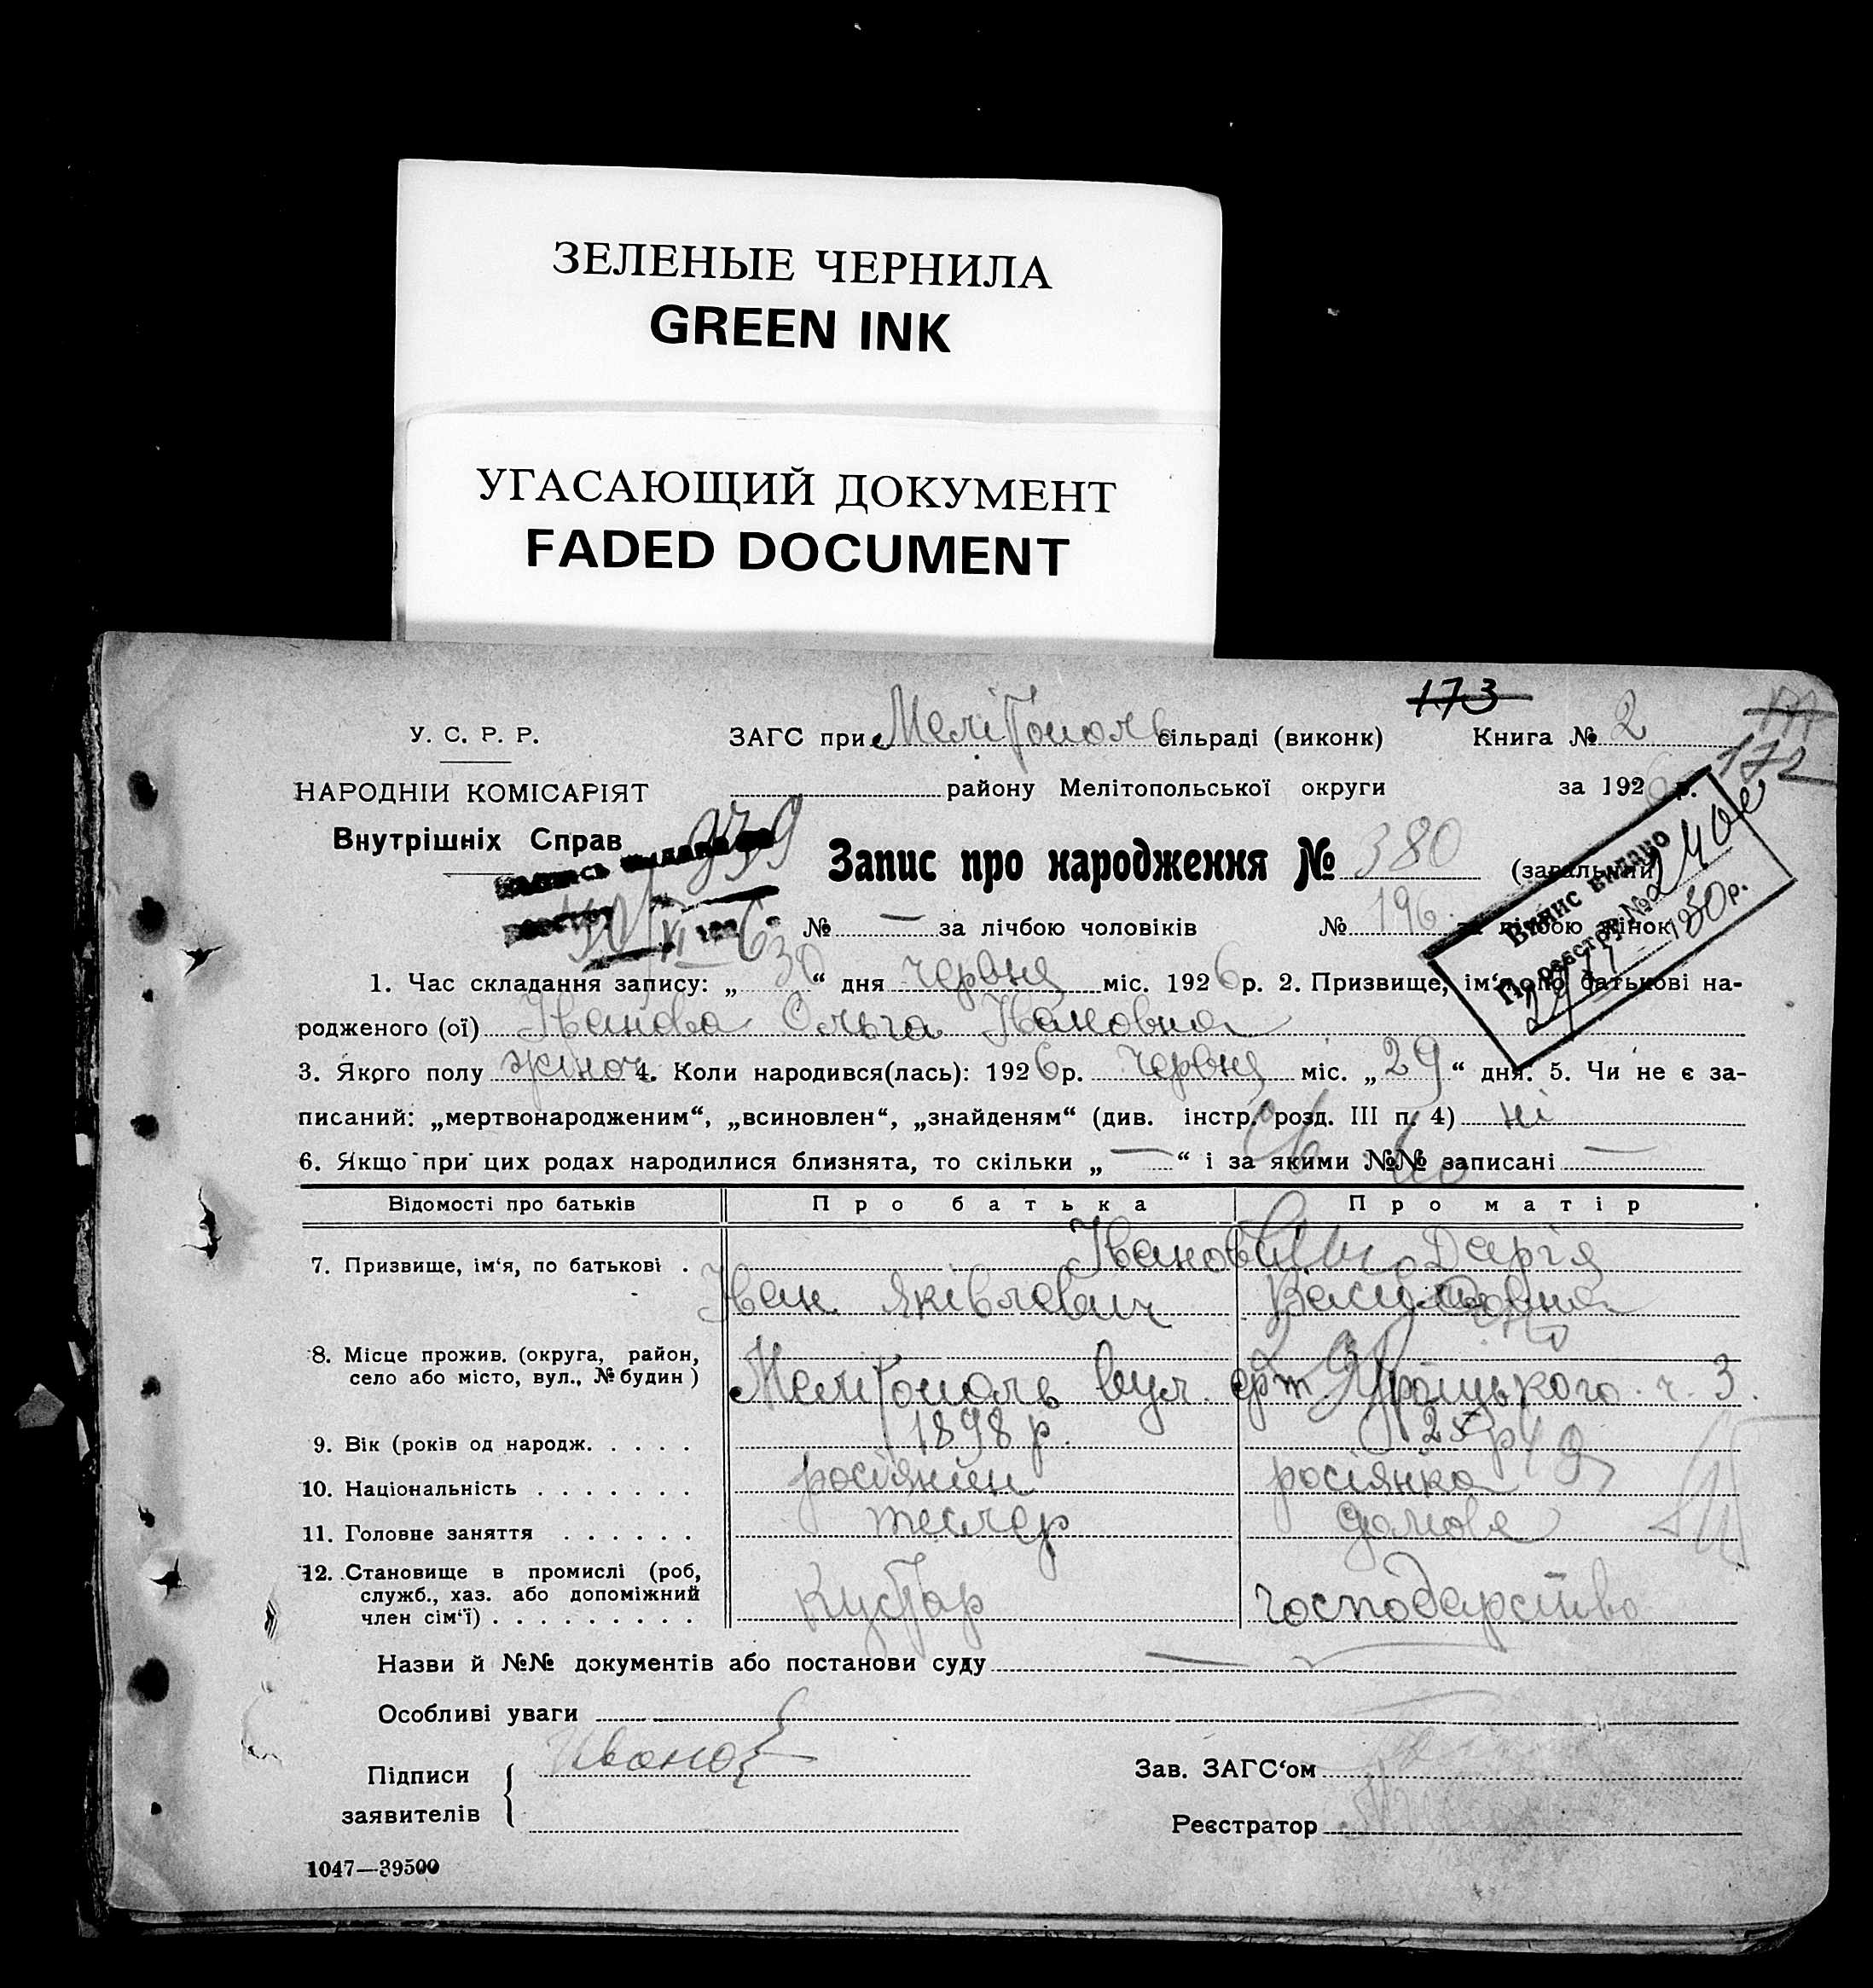 ЗЕЛЕНЫЕ ЧЕРНИЛА
GREEN INK
УГАСАЮЩИЙ ДОКУМЕНТ
FADED DOCUMENT
173
172
У. С. Р. Р.
ЗАГС при Мелітополь сільраді (виконк) Книга № 2
НАРОДНІЙ КОМІСАРІЯТ
району Мелітопольської округи за 1926 р.
Внутрішніх Справ
939
Запис про народження № 380 (загальний
№ — за лічбою чоловіків № 196 за лічбою жінок
Випис видано
По реєстру №
1930 р.
1. Час складання запису: „30“ дня червня міс. 1926 р. 2. Призвище, ім‘я по батькові на-
родженого (ої) Іванова Ольга Івановна
3. Якого полу жіноч 4. Коли народився(лась): 1926 р. червня міс. „29“ дня. 5. Чи не є за-
писаний: „мертвонародженим“, „всиновлен“, „знайденям“ (див. інстр. розд. III п. 4) ні
6. Якщо при цих родах народилися близнята, то скільки „—“ і за якими №№ записані —
Відомості про батьків Про батька Про матір
7. Призвище, ім‘я, по батькові . Іванови Дарія
Іван Яківлевич Василівна
8. Місце прожив. (округа, район,
село або місто, вул., № будин)
Мелітополь вул. Троцького ч. 3.
9. Вік (років од народж. . . . . 1898 р. 25 р
10. Національність . . . . . . . росіянин росіянка
11. Головне заняття . . . . . . тесляр домове
12. Становище в промислі (роб,
служб., хаз. або допоміжний
член сім‘ї) . . . . . . . . . Кустар господарство
Назви й №№ документів або постанови суду —
Особливі уваги
Підписи Иванов
заявителів
Зав. ЗАГС‘ом
Реєстратор
1047—39500